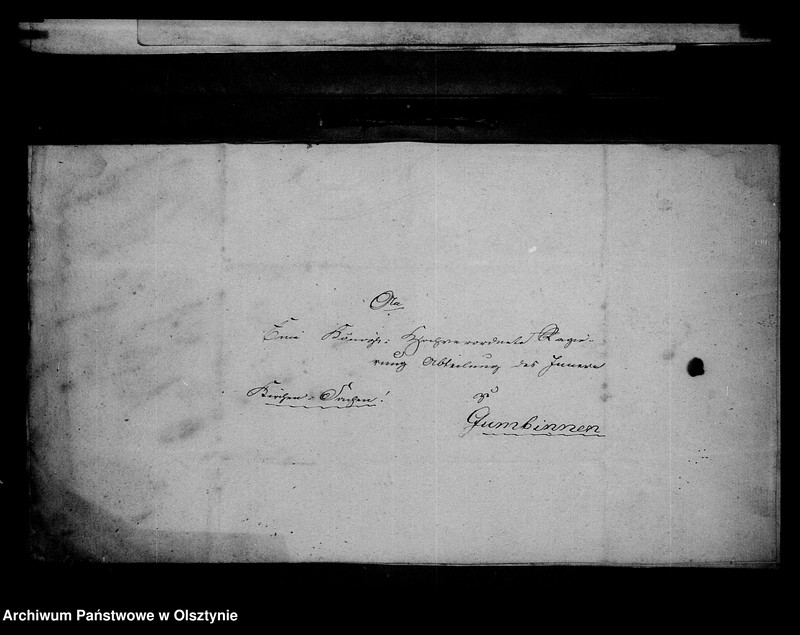 An
Eine Königl: Hochverordnete Regie-
rung Abteilung des Innern
Kirchen-Sachen!
zu
Gumbinnen
Archiwum Państwowe w Olsztynie